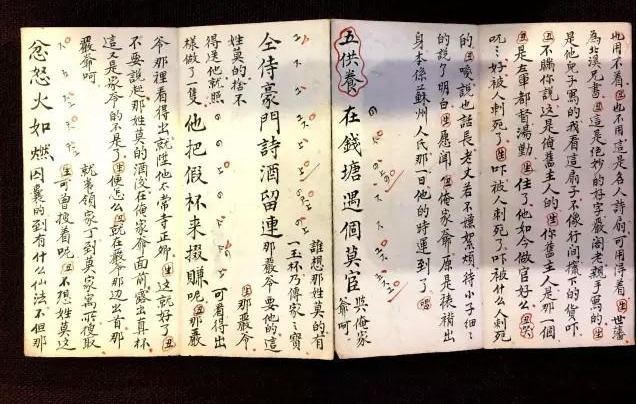 也用不着㊤也不用這是名人詩扇可用得着㊤世藩
為北溟兄書㊤這是絕妙的好字嚴閣老親手寫的㊤
是他兒子寫的我看這扇子不像行間攤下的貨吓
不瞞你說這是俺舊主人的生你舊主人是那一個
丑是左軍都督湯勤生住了他如今做官好么丑哭
好被人刺死了生吓被人刺死了吓被什么人刺死
的丑唉說也話長老丈若不嫌絮煩待小子細ミ
的說了明白生愿聞丑俺家爺原是裱褙出
身本係蘇州人氏那一日他的時運到了唱
五供養 在錢塘遇個莫官 與俺家
爺呵
誰想那姓莫的有
一玉杯乃傳家之寶
仝侍豪門詩酒留連 那嚴爺要他的這
姓莫的捨不 生那嚴爺
得送他就照 可看得出
樣做了隻 他把假杯來掇賺呢 丑那嚴
爺那裡看得出就陞他不常寺正卿生這就好了丑
不要說起那姓莫的酒後在俺家爺面前露出真杯
這又是家爺的不是了生便怎么丑就在嚴爺那邊出首那
嚴爺呵 就差領家丁到莫家寓所搜取
生可曾搜着呢丑不想姓莫這
忿怒火如燃 的到有什么仙法不但那